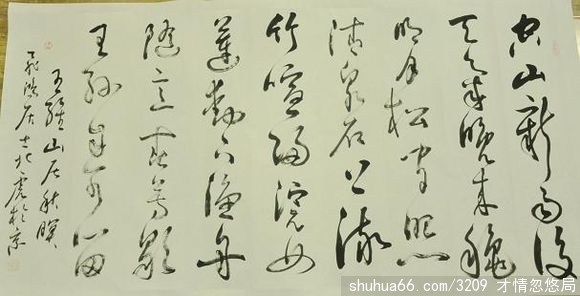 空山新雨後
天氣晚來龝
明月松間照
清泉石上流
竹喧歸浣女
蓮動下漁舟
隨意春芳歇
王孫自可留
王維山居秋暝
居士北虎於京
shuhua66.com/3209 才情忽悠局